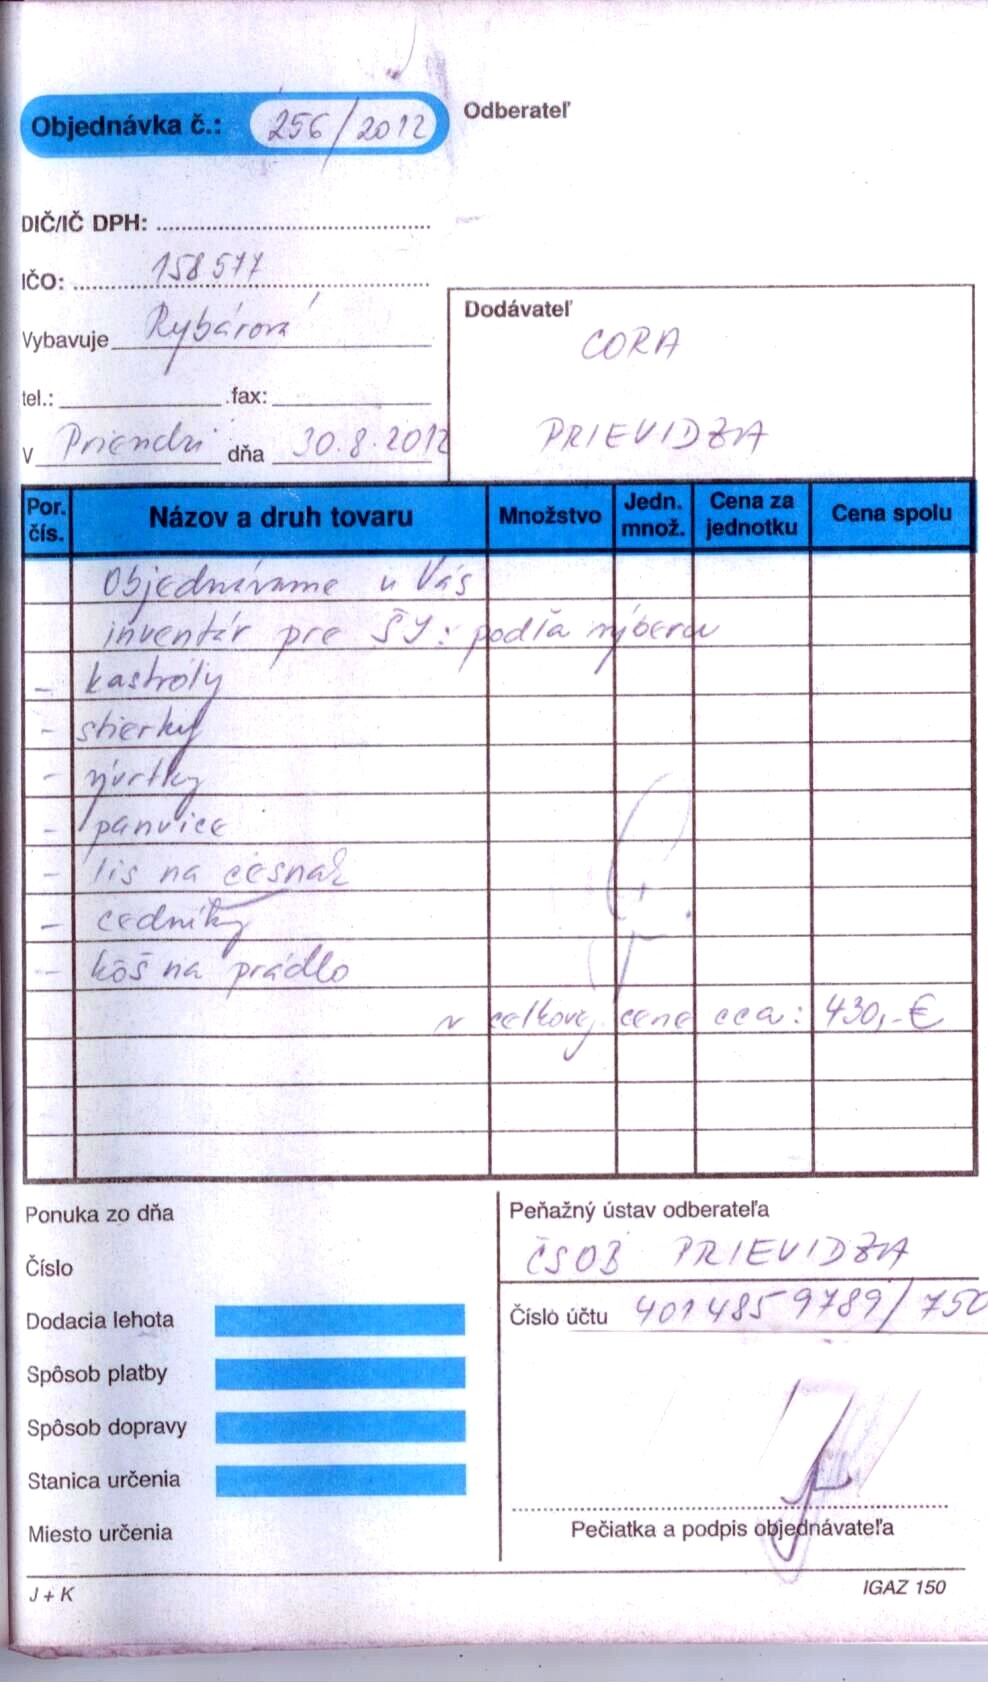 Objednávka č.: 256/2012
Odberateľ
DIČ/IČ DPH:
IČO: 158577
Vybavuje Rybárová
tel.: fax:
V dňa 30.8.2012
Dodávateľ
CORA
PRIEVIDZA
Por. čís. Názov a druh tovaru Množstvo Jedn. množ. Cena za jednotku Cena spolu
Objednávame u Vás
inventár pre ŠJ: podľa výberu
- kastróly
- stierky
- vývrtky
- panvice
- lis na cesnak
- cedníky
- kôš na prádlo
v celkovej cene cca: 430,-€
Ponuka zo dňa
Číslo
Dodacia lehota
Spôsob platby
Spôsob dopravy
Stanica určenia
Miesto určenia
Peňažný ústav odberateľa
ČSOB PRIEVIDZA
Číslo účtu 4014859789/750
Pečiatka a podpis objednávateľa
J + K
IGAZ 150